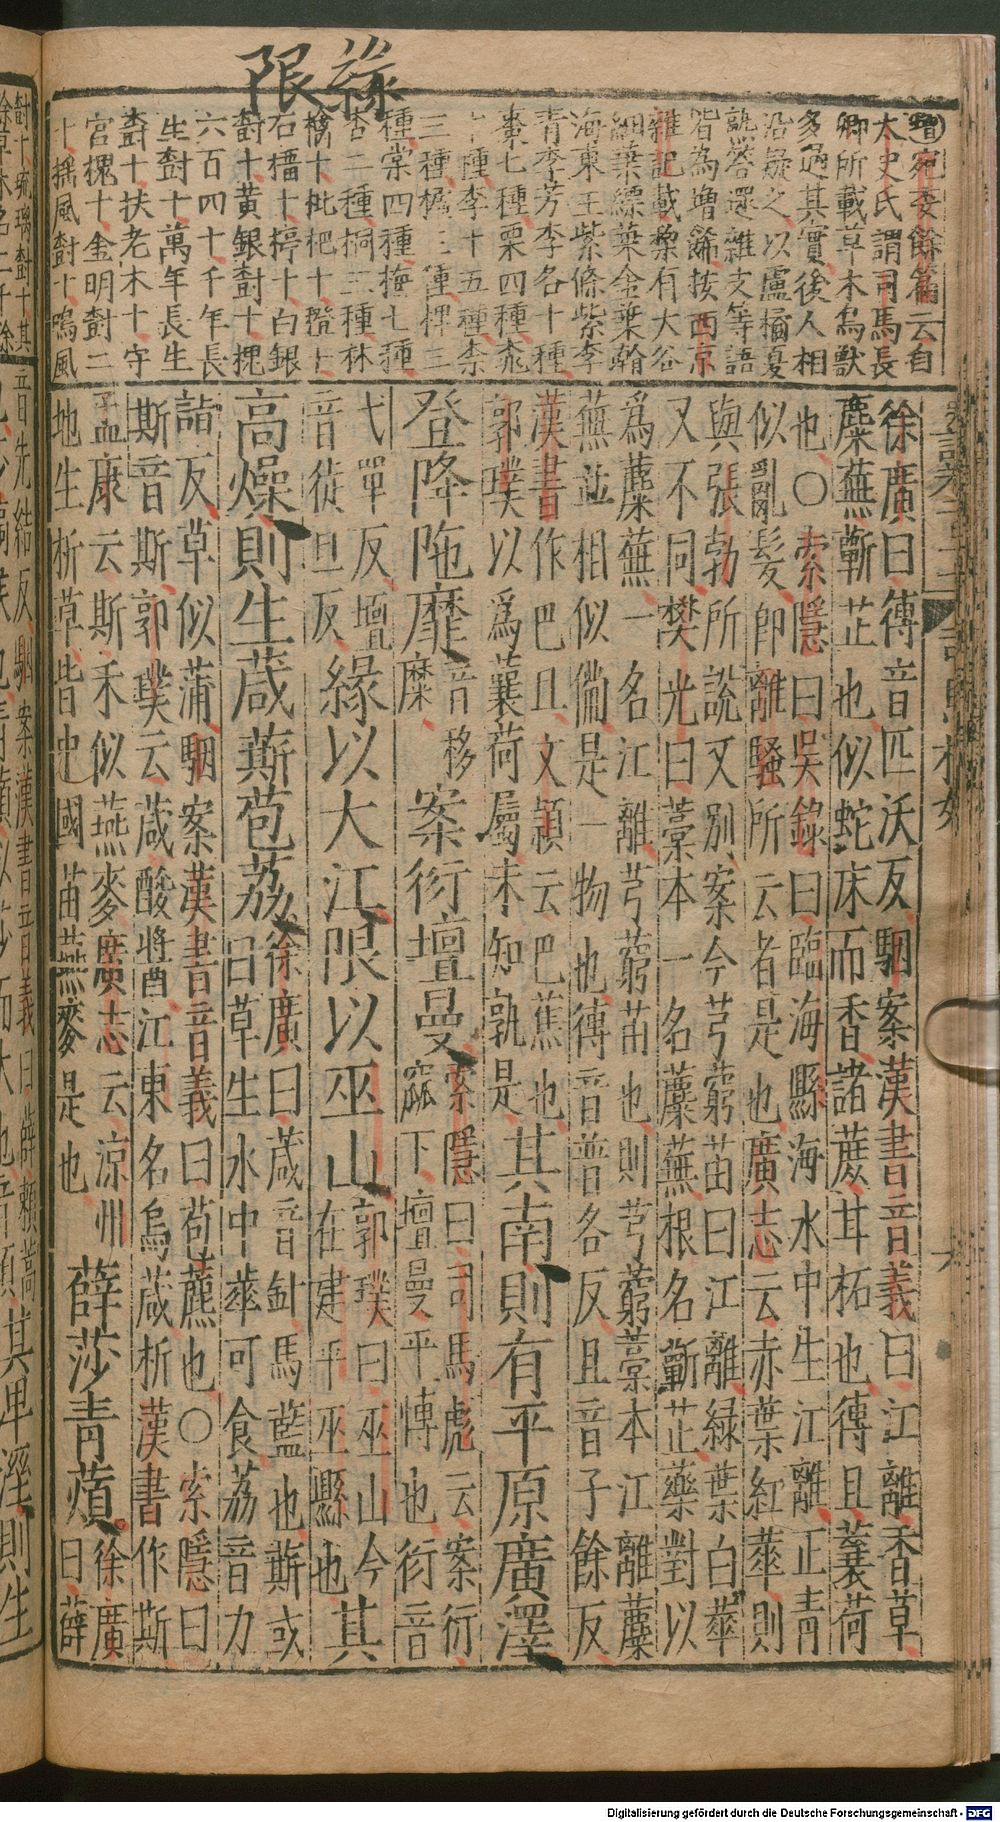 緣限
增宛委餘篇云自
太史氏謂司馬長
卿所載草木鳥獸
多過其實後人相
沿疑之以盧橘夏
熟答還雜支等語
皆為增餙按西京
雜記載棃有大谷
細葉縹葉金葉瀚
海東王紫條紫李
青李芳李各十種
棗七種栗四種桃
十種李十五種柰
三種樝三種椑三
種棠四種梅七種
杏二種桐三種林
檎十枇杷十橙十
石榴十楟十白銀
樹十黃銀樹十槐
六百四十千年長
生樹十萬年長生
樹十扶老木十守
宮槐十金明樹二
十搖風樹十鳴風
徐廣曰傅音匹沃反駰案漢書音義曰江離香草
麋蕪蘄芷也似蛇床而香諸蔗甘柘也傅且蘘荷
也○索隱曰吳錄曰臨海縣海水中生江離正青
似亂髮卽離騷所云者是也廣志云赤葉紅華則
與張勃所說又別案今芎藭苗曰江離綠葉白華
又不同樊光曰藁本一名麋蕪根名蘄芷藥對以
爲麋蕪一名江離芎藭苗也則芎藭藁本江離麋
蕪並相似備是一物也傅音普各反且音子餘反
漢書作巴且文頴云巴蕉也
郭璞以爲蘘荷屬未知孰是其南則有平原廣澤
登降陁靡音移糜案衍壇曼索隱曰司馬彪云案衍窳下壇曼平博也衍音
弋單反壇音徒旦反緣以大江限以巫山郭璞曰巫山今在建平巫縣也其
高燥則生葴薪苞荔徐廣曰葴音針馬藍也蕲或曰草生水中華可食荔音力
詣反草似蒲駰案漢書音義曰苞藨也○索隱曰
斯音斯郭璞云葴酸將酱江東名烏葴析漢書作斯
孟康云斯禾似燕麥廣志云涼州
地生析草皆中國苗燕麥是也薛莎青薠徐廣曰薛
Digitalisierung gefördert durch die Deutsche Forschungsgemeinschaft - DFG